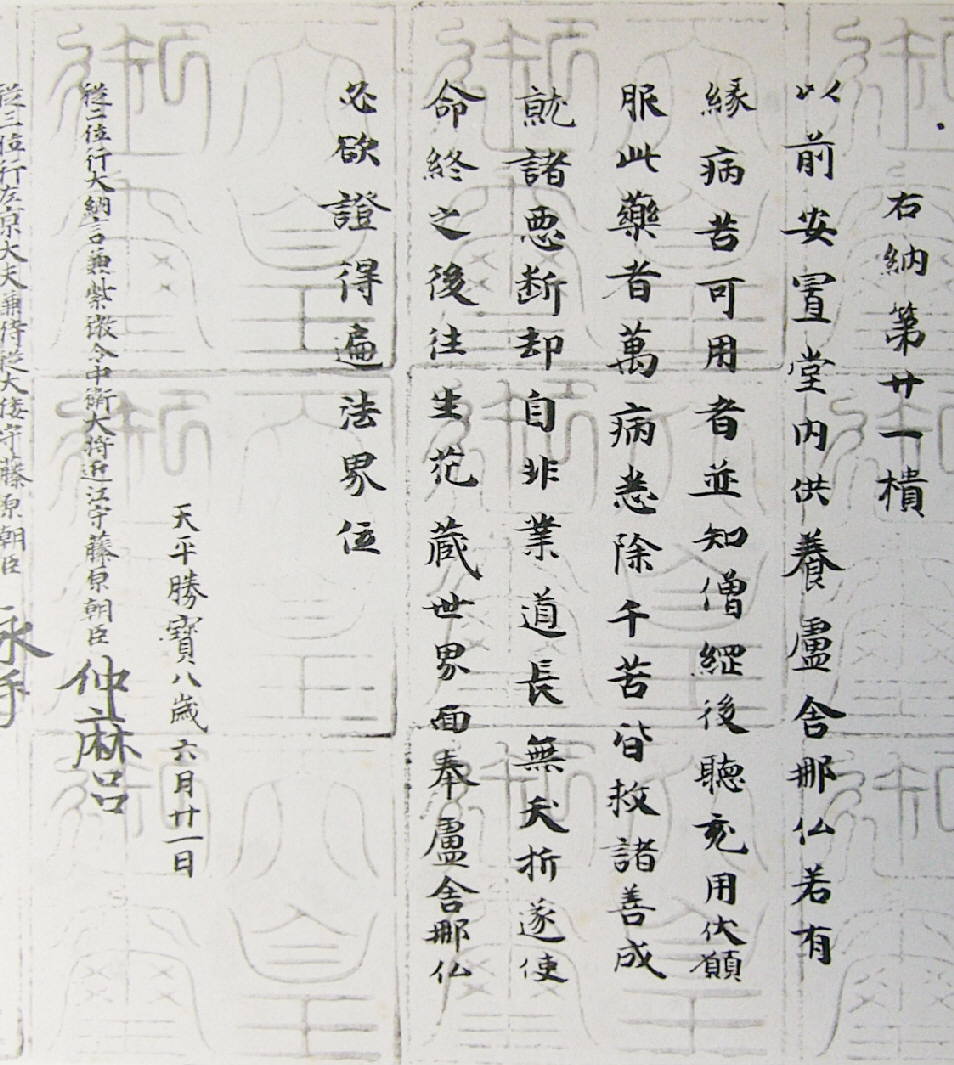 右納第廿一樻
以前安置堂内供養盧舍那仏若有
縁病苦可用者並知僧綱後聽充用伏願
服此藥者萬病悉除千苦皆救諸善成
就諸悪断却自非業道長無夭折遂使
命終之後往生花蔵世界面奉盧舍那仏
必欲證得遍法界位
天平勝寶八歳六月廿一日
従二位行大納言兼紫微令中衛大将近江守藤原朝臣仲麻呂
従三位行左京大夫兼侍従大倭守藤原朝臣永手